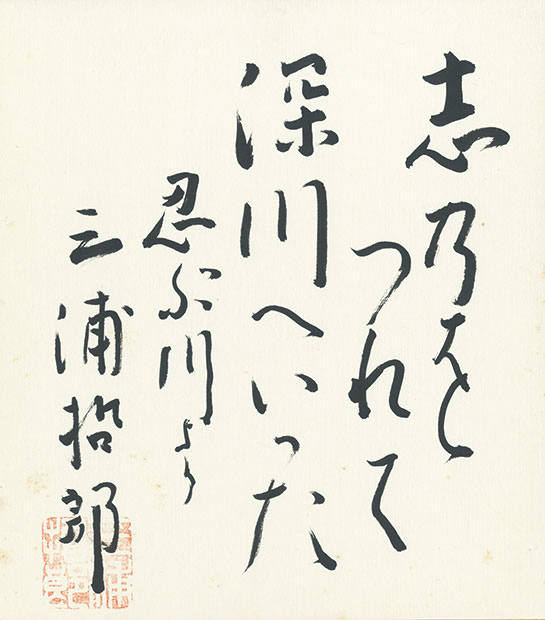 志乃をと
つれて
深川へいった
忍ぶ川より
三浦哲郎